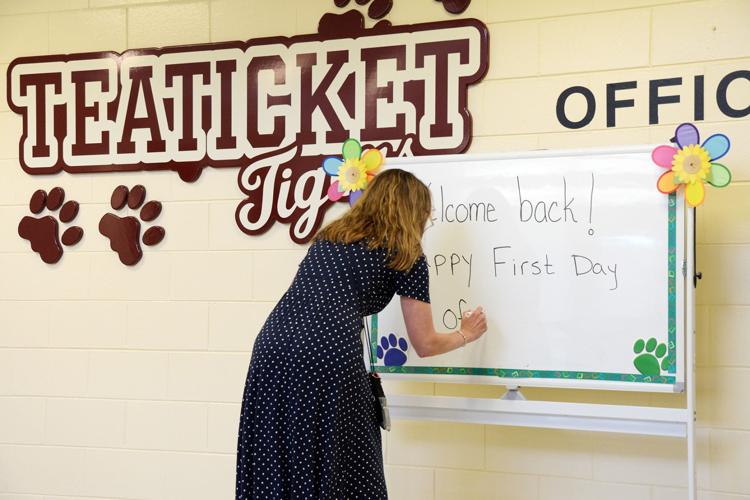 TEATICKET
Tigers
OFFIC
elcome back!
appy First Day
of